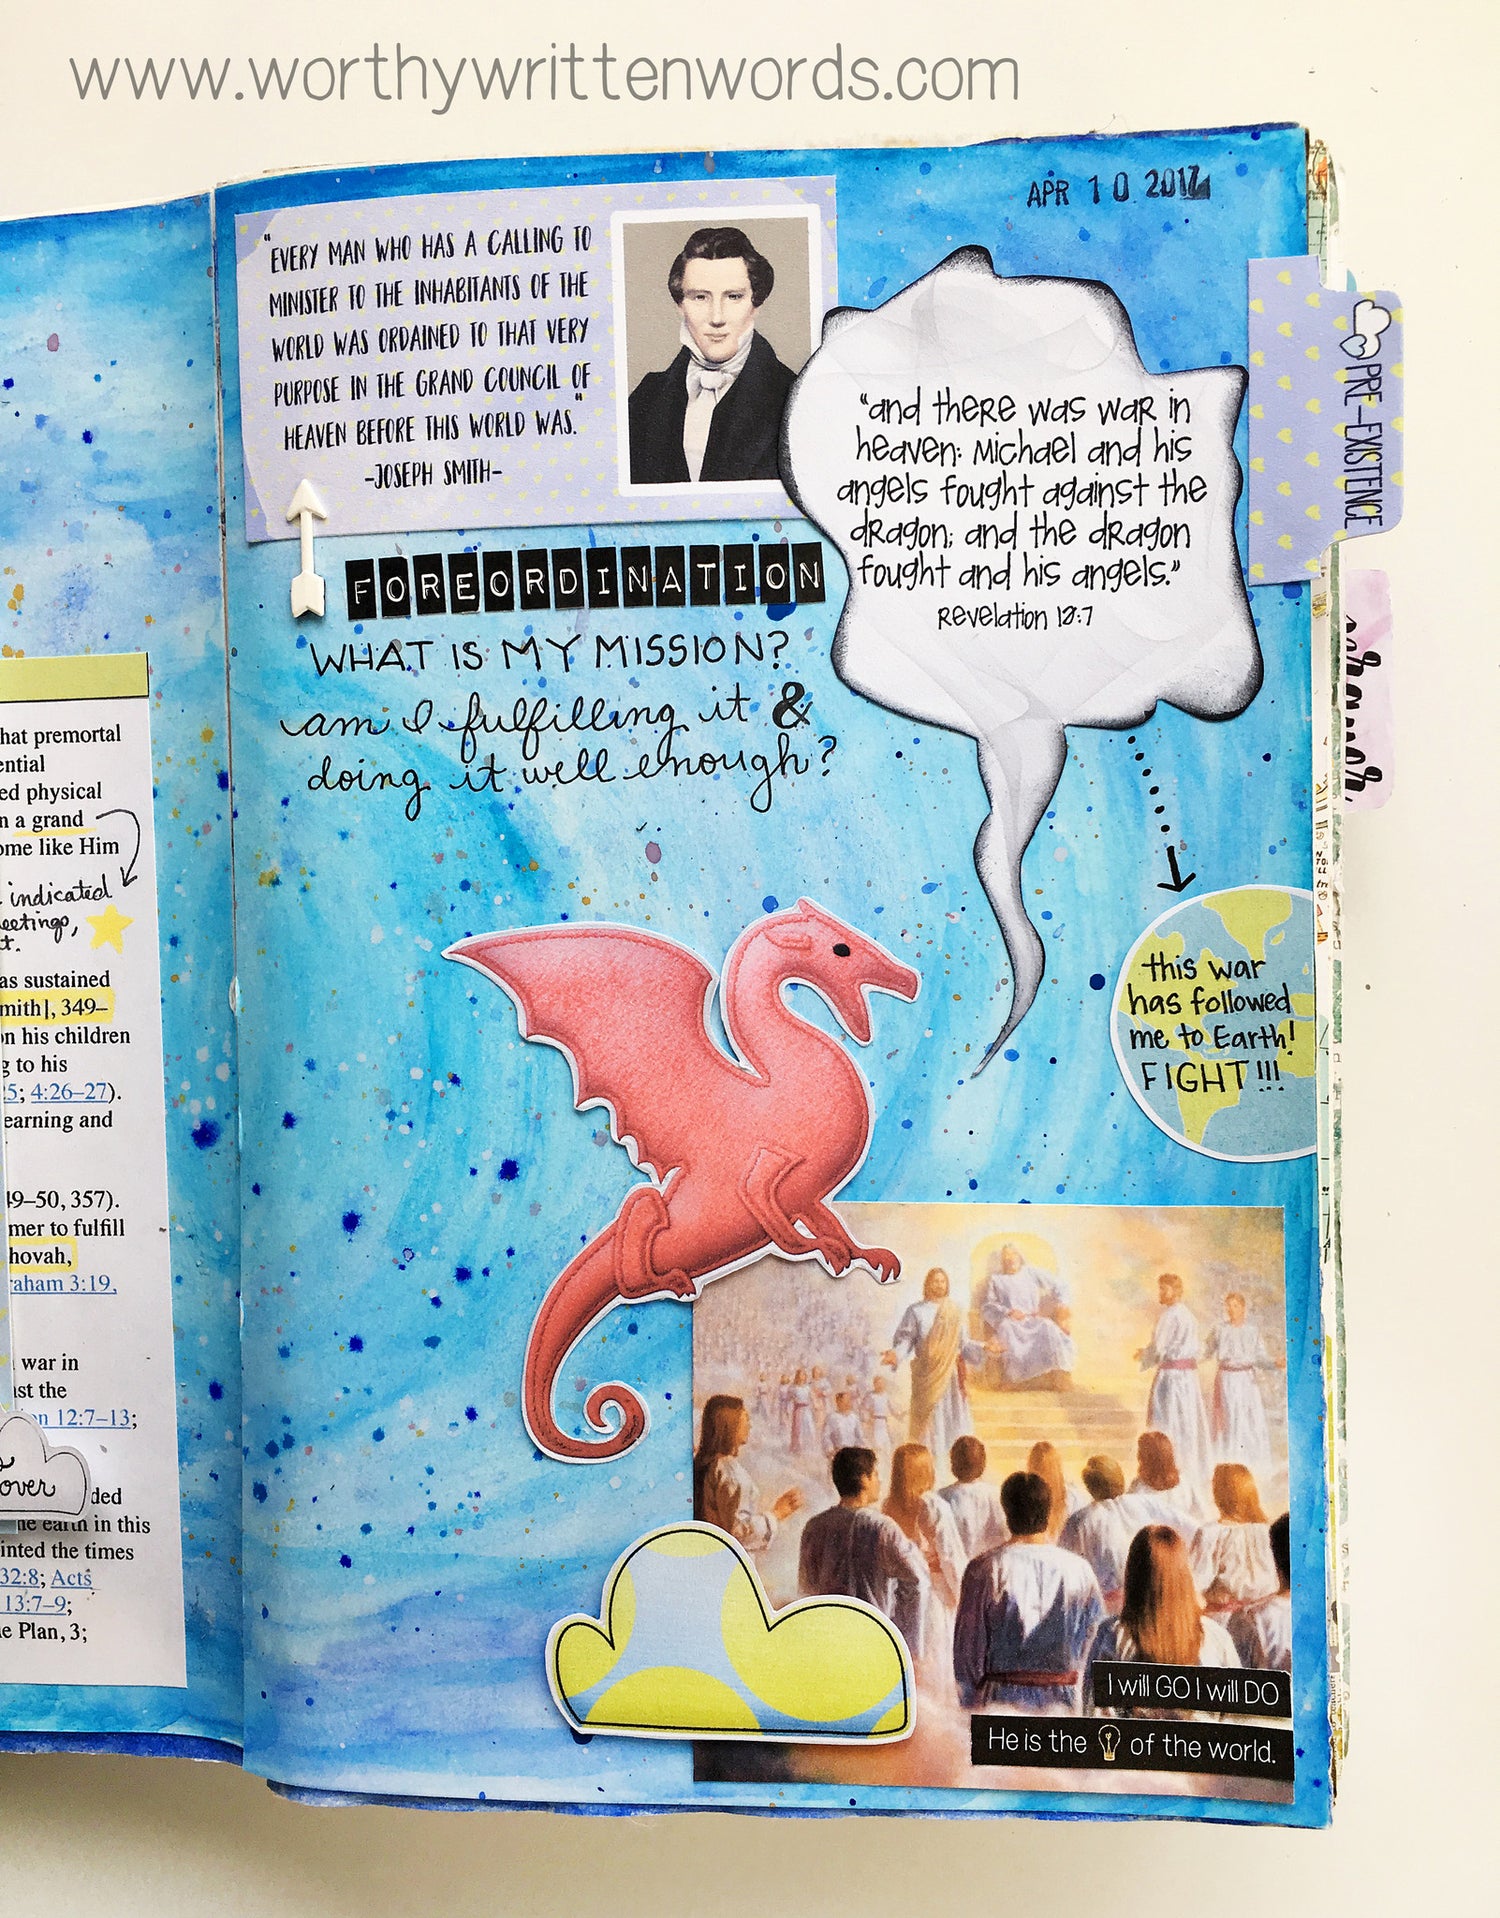 www.worthywrittenwords.com
APR 10 2017
"EVERY MAN WHO HAS A CALLING TO
MINISTER TO THE INHABITANTS OF THE
WORLD WAS ORDAINED TO THAT VERY
PURPOSE IN THE GRAND COUNCIL OF
HEAVEN BEFORE THIS WORLD WAS."
-JOSEPH SMITH-
"and there was war in
heaven: Michael and his
angels fought against the
dragon; and the dragon
fought and his angels."
Revelation 12:7
PRE-EXISTENCE
FOREORDINATION
WHAT IS MY MISSION?
am I fulfilling it &
doing it well enough?
this war
has followed
me to Earth!
FIGHT!!!
I will GO I will DO
He is the of the world.
hat premortal
ential
ed physical
n a grand
ome like Him
indicated
eetings,
t.
as sustained
mith], 349–
on his children
g to his
5; 4:26–27).
earning and
49–50, 357).
mer to fulfill
hovah,
raham 3:19,
war in
st the
on 12:7–13;
over
ded
he earth in this
inted the times
32:8; Acts
13:7–9;
e Plan, 3;